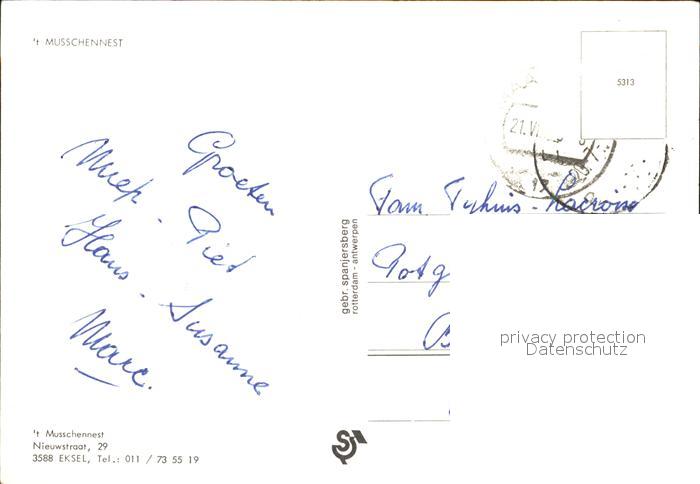 't MUSSCHENNEST
5313
21.VI
Groeten
Miep - Piet
Hans - Susanne
Marc.
Fam
gebr. spanjersberg
rotterdam - antwerpen
privacy protection
Datenschutz
't Musschennest
Nieuwstraat, 29
3588 EKSEL, Tel.: 011 / 73 55 19